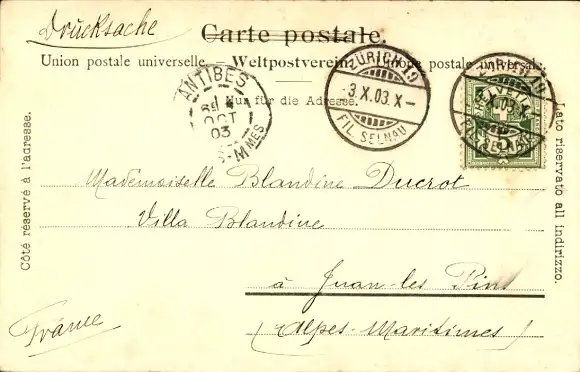 Drucksache
Carte postale.
Union postale universelle. — Weltpostverein. — Unione postale universale.
Nur für die Adresse.
ZÜRICH 19
-3.X.03.X-
FIL. SELNAU
ZÜRICH 19
X.03.X
FIL. SELNAU
HELVETIA
ANTIBES
OCT
03
MMES
Côté réservé à l'adresse.
Lato riservato all indirizzo.
Mademoiselle Blandine Ducrot
Villa Blandine
à Juan-les Pins
(Alpes-Maritimes)
Fráme